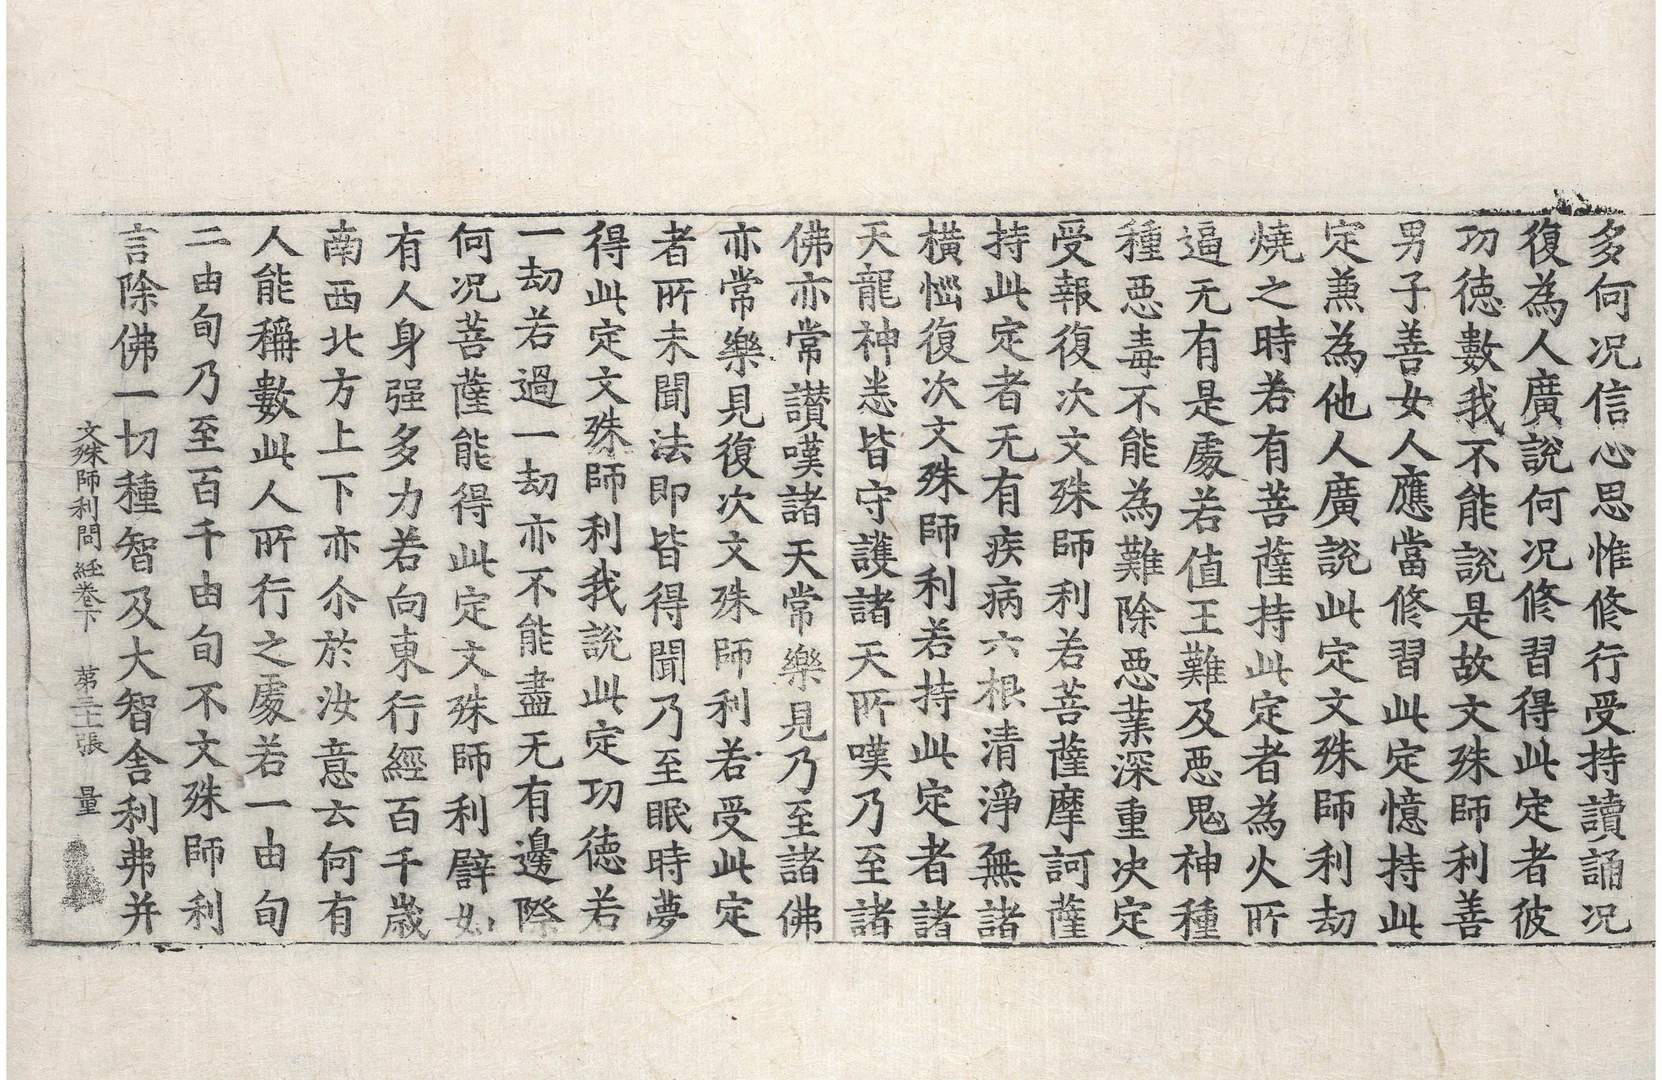 多何况信心思惟修行受持讀誦况
復為人廣說何况修習得此定者彼
功徳數我不能說是故文殊師利善
男子善女人應當修習此定憶持此
定兼為他人廣說此定文殊師利劫
燒之時若有菩薩持此定者為火所
逼无有是處若值王難及惡鬼神種
種惡毒不能為難除惡業深重决定
受報復次文殊師利若菩薩摩訶薩
持此定者无有疾病六根清淨無諸
橫惱復次文殊師利若持此定者諸
天龍神悉皆守護諸天所嘆乃至諸
佛亦常讃嘆諸天常樂見乃至諸佛
亦常樂見復次文殊師利若受此定
者所未聞法即皆得聞乃至眠時夢
得此定文殊師利我說此定功徳若
一劫若過一劫亦不能盡无有邊際
何况菩薩能得此定文殊師利譬如
有人身强多力若向東行經百千歲
南西北方上下亦尒於汝意云何有
人能稱數此人所行之處若一由旬
二由旬乃至百千由旬不文殊師利
言除佛一切種智及大智舍利弗并
文殊師利問経卷下 第三十張 量